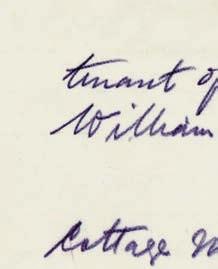 tenant of
William
Cottage